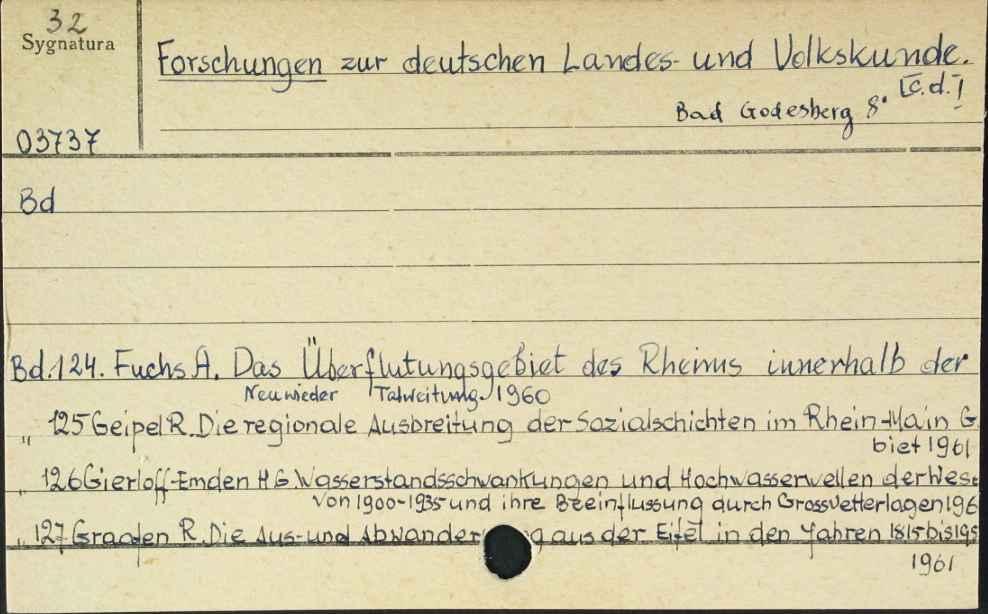 32
Sygnatura
Forschungen zur deutschen Landes- und Volkskunde.
[c.d.]
Bad Godesberg 8°
03737
Bd
Bd.124. Fuchs A. Das Überflutungsgebiet des Rheins innerhalb der
Neuwieder Talweitung 1960
" 125 Geipel R. Die regionale Ausbreitung der Sozialschichten im Rhein-Main G
biet 1961
" 126 Gierloff-Emden H G Wasserstandsschwankungen und Hochwasserwellen der Wese
von 1900-1935 und ihre Beeinflussung durch Grossvetterlagen 196
" 127 Graafen R. Die Aus- und Abwander g aus der Eifel in den Jahren 1815 bis 195
1961